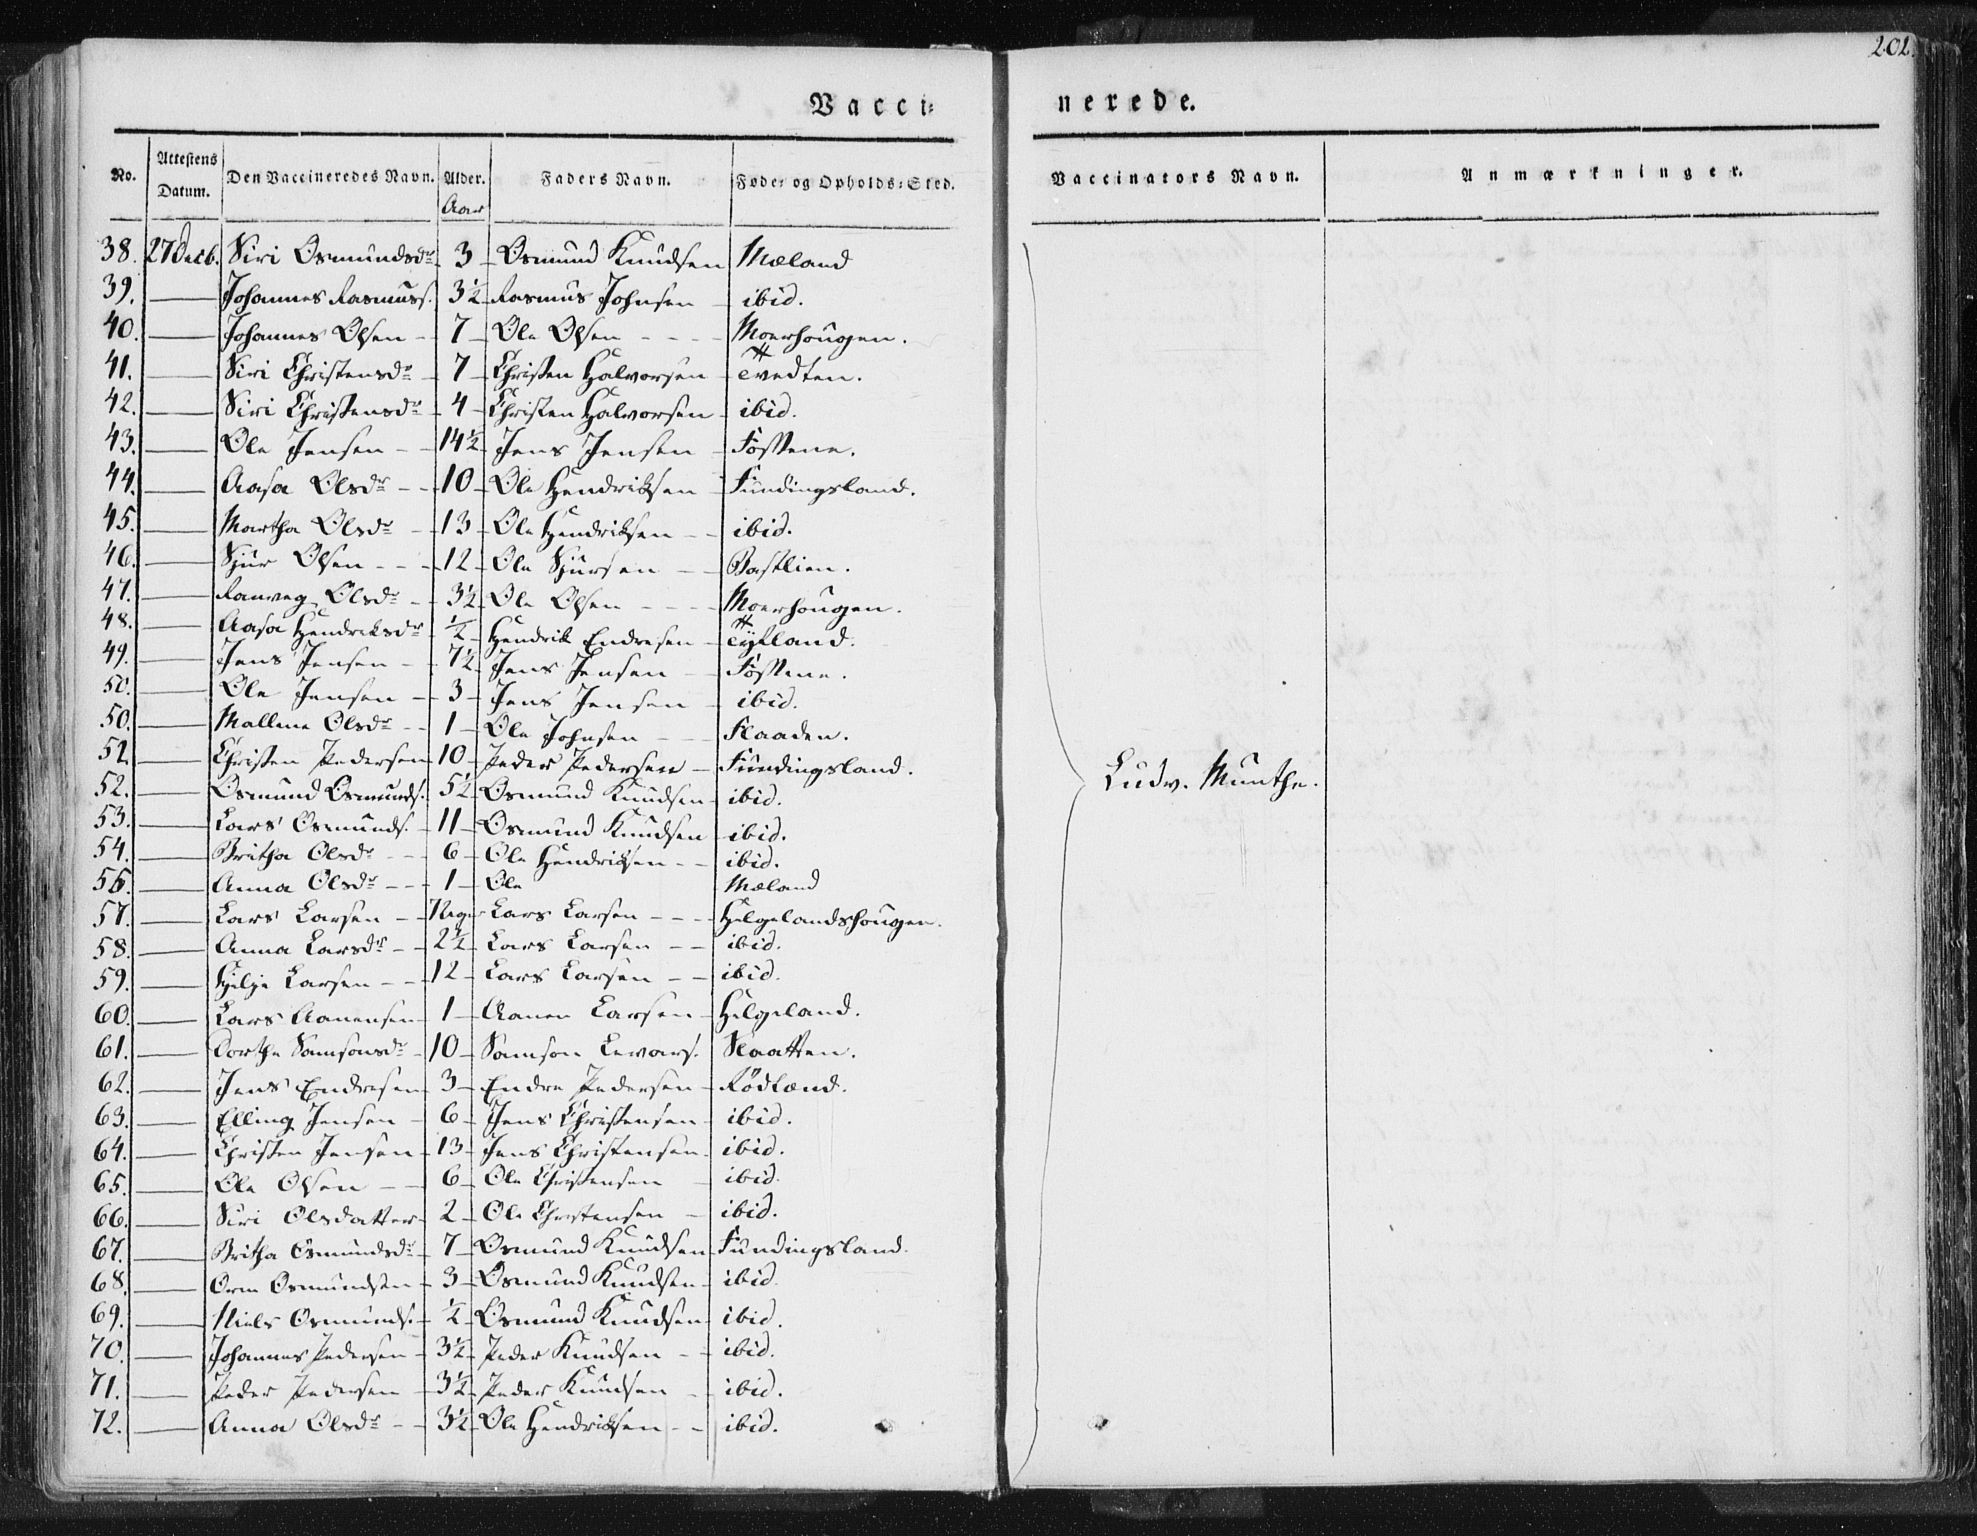 202.
Vacci-
nerede.
No. Attestens Datum. Den Vaccineredes Navn. Alder. Faders Navn. Føde- og Opholds-Sted. Vaccinators Navn. Anmærkninger.
Aar
38. 27 Decb. Siri Osmundsdr 3 Osmund Knudsen Mæland
39. — Johannes Rasmuss. 3½ Rasmus Johnsen ibid.
40. — Johannes Olsen 7 Ole Olsen Moerhougen.
41. — Siri Christensdr 7 Christen Halvorsen Tvedten.
42. — Siri Christensdr 4 Christen Halvorsen ibid.
43. — Ole Jensen 14½ Jens Jensen Fossene.
44. — Aasa Olsdr 10 Ole Hendriksen Fundingsland.
45. — Martha Olsdr 13 Ole Hendriksen ibid.
46. — Sjur Olsen 12 Ole Sjursen Bastlien.
47. — Ranveg Olsdr 3½ Ole Olsen Moerhougen.
48. — Aasa Hendriksdr ½ Hendrik Endresen Tyfland.
49. — Jens Jensen 7½ Jens Jensen Fossene.
50. — Ole Jensen 3 Jens Jensen ibid.
50. — Mallene Olsdr 1 Ole Johnsen Flaaden.
51. — Christen Pedersen 10 Peder Pedersen Fundingsland.
52. — Osmund Osmunds. 5½ Osmund Knudsen ibid.
53. — Lars Osmunds. 11 Osmund Knudsen ibid.
54. — Britha Olsdr 6 Ole Hendriksen ibid.
56. — Anna Olsdr 1 Ole Mæland
57. — Lars Larsen Lars Larsen Helgelandshougen.
58. — Anna Larsdr 2½ Lars Larsen ibid.
59. — Hilje Larsen 12 Lars Larsen ibid.
60. — Lars Aanensen 1 Aanen Larsen Helgeland.
61. — Dorthe Samsonsdr 10 Samson Levars. Slaatten.
62. — Jens Endresen 3 Endre Pedersen Rødland.
63. — Elling Jensen 6 Jens Christensen ibid.
64. — Christen Jensen 13 Jens Christensen ibid.
65. — Ole Olsen 6 Ole Christensen ibid.
66. — Siri Olsdatter 2 Ole Christensen ibid.
67. — Britha Osmundsdr 7 Osmund Knudsen Fundingsland.
68. — Orm Osmundsen 3 Osmund Knudsen ibid.
69. — Niels Osmunds. ½ Osmund Knudsen ibid.
70. — Johannes Pedersen 3½ Peder Knudsen ibid.
71. — Peder Pedersen 3½ Peder Knudsen ibid.
72. — Anna Olsdr 3½ Ole Hendriksen ibid.
Ludv. Munthe.